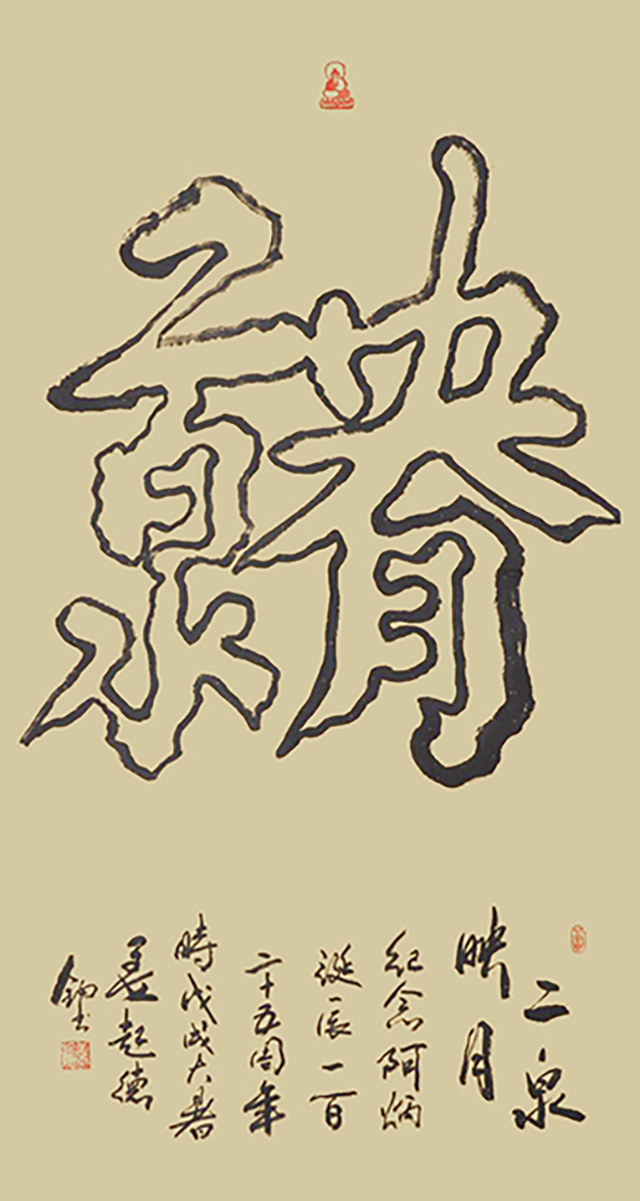 二泉映月
二泉
映月
紀念阿炳
诞辰一百
二十五周年
時戊戌大暑
起德